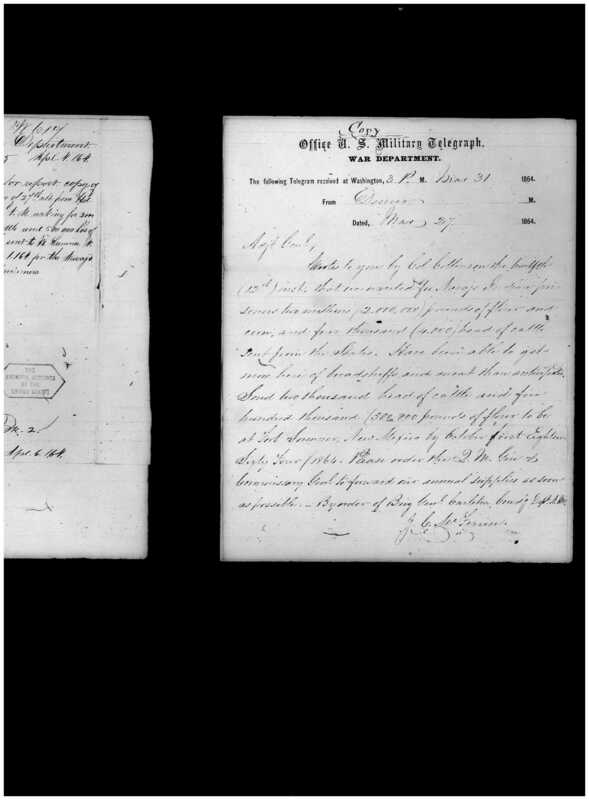 Department
Apl. 4. 164
for report copy of
of 27th ult. from
asking for 2000
and 500 000 lbs of
sent to Ft Sumner N.
164 for the Navajo
THE
NATIONAL ARCHIVES
OF THE
UNITED STATES
M. 2.
Apl. 6. 164
Copy
Office U. S. Military Telegraph.
WAR DEPARTMENT.
The following Telegram received at Washington, 3 P. M. Mar 31 1864.
From Denver M.
Dated, Mar 27 1864.
Adjt Genl,
Wrote to you by Col Colterson the twelfth
(12th) inst. that we wanted for Navajo Indian pris-
oners two millions (2.000,000) pounds of flour and
corn, and four thousand (4.000) head of cattle
sent from the States. Have been able to get
more here of breadstuffs and meat than anticipated.
Send two thousand head of cattle and five
hundred thousand (500,000 pounds of flour to be
at Fort Sumner, New Mexico by October first Eighteen
Sixty Four / 1864. Please order the Q. M. Gen &
Commissary Genl to forward our annual supplies as soon
as possible. – By order of Brig Genl Carleton, Comd'g Dept. N.M.
J. C. McFerran.